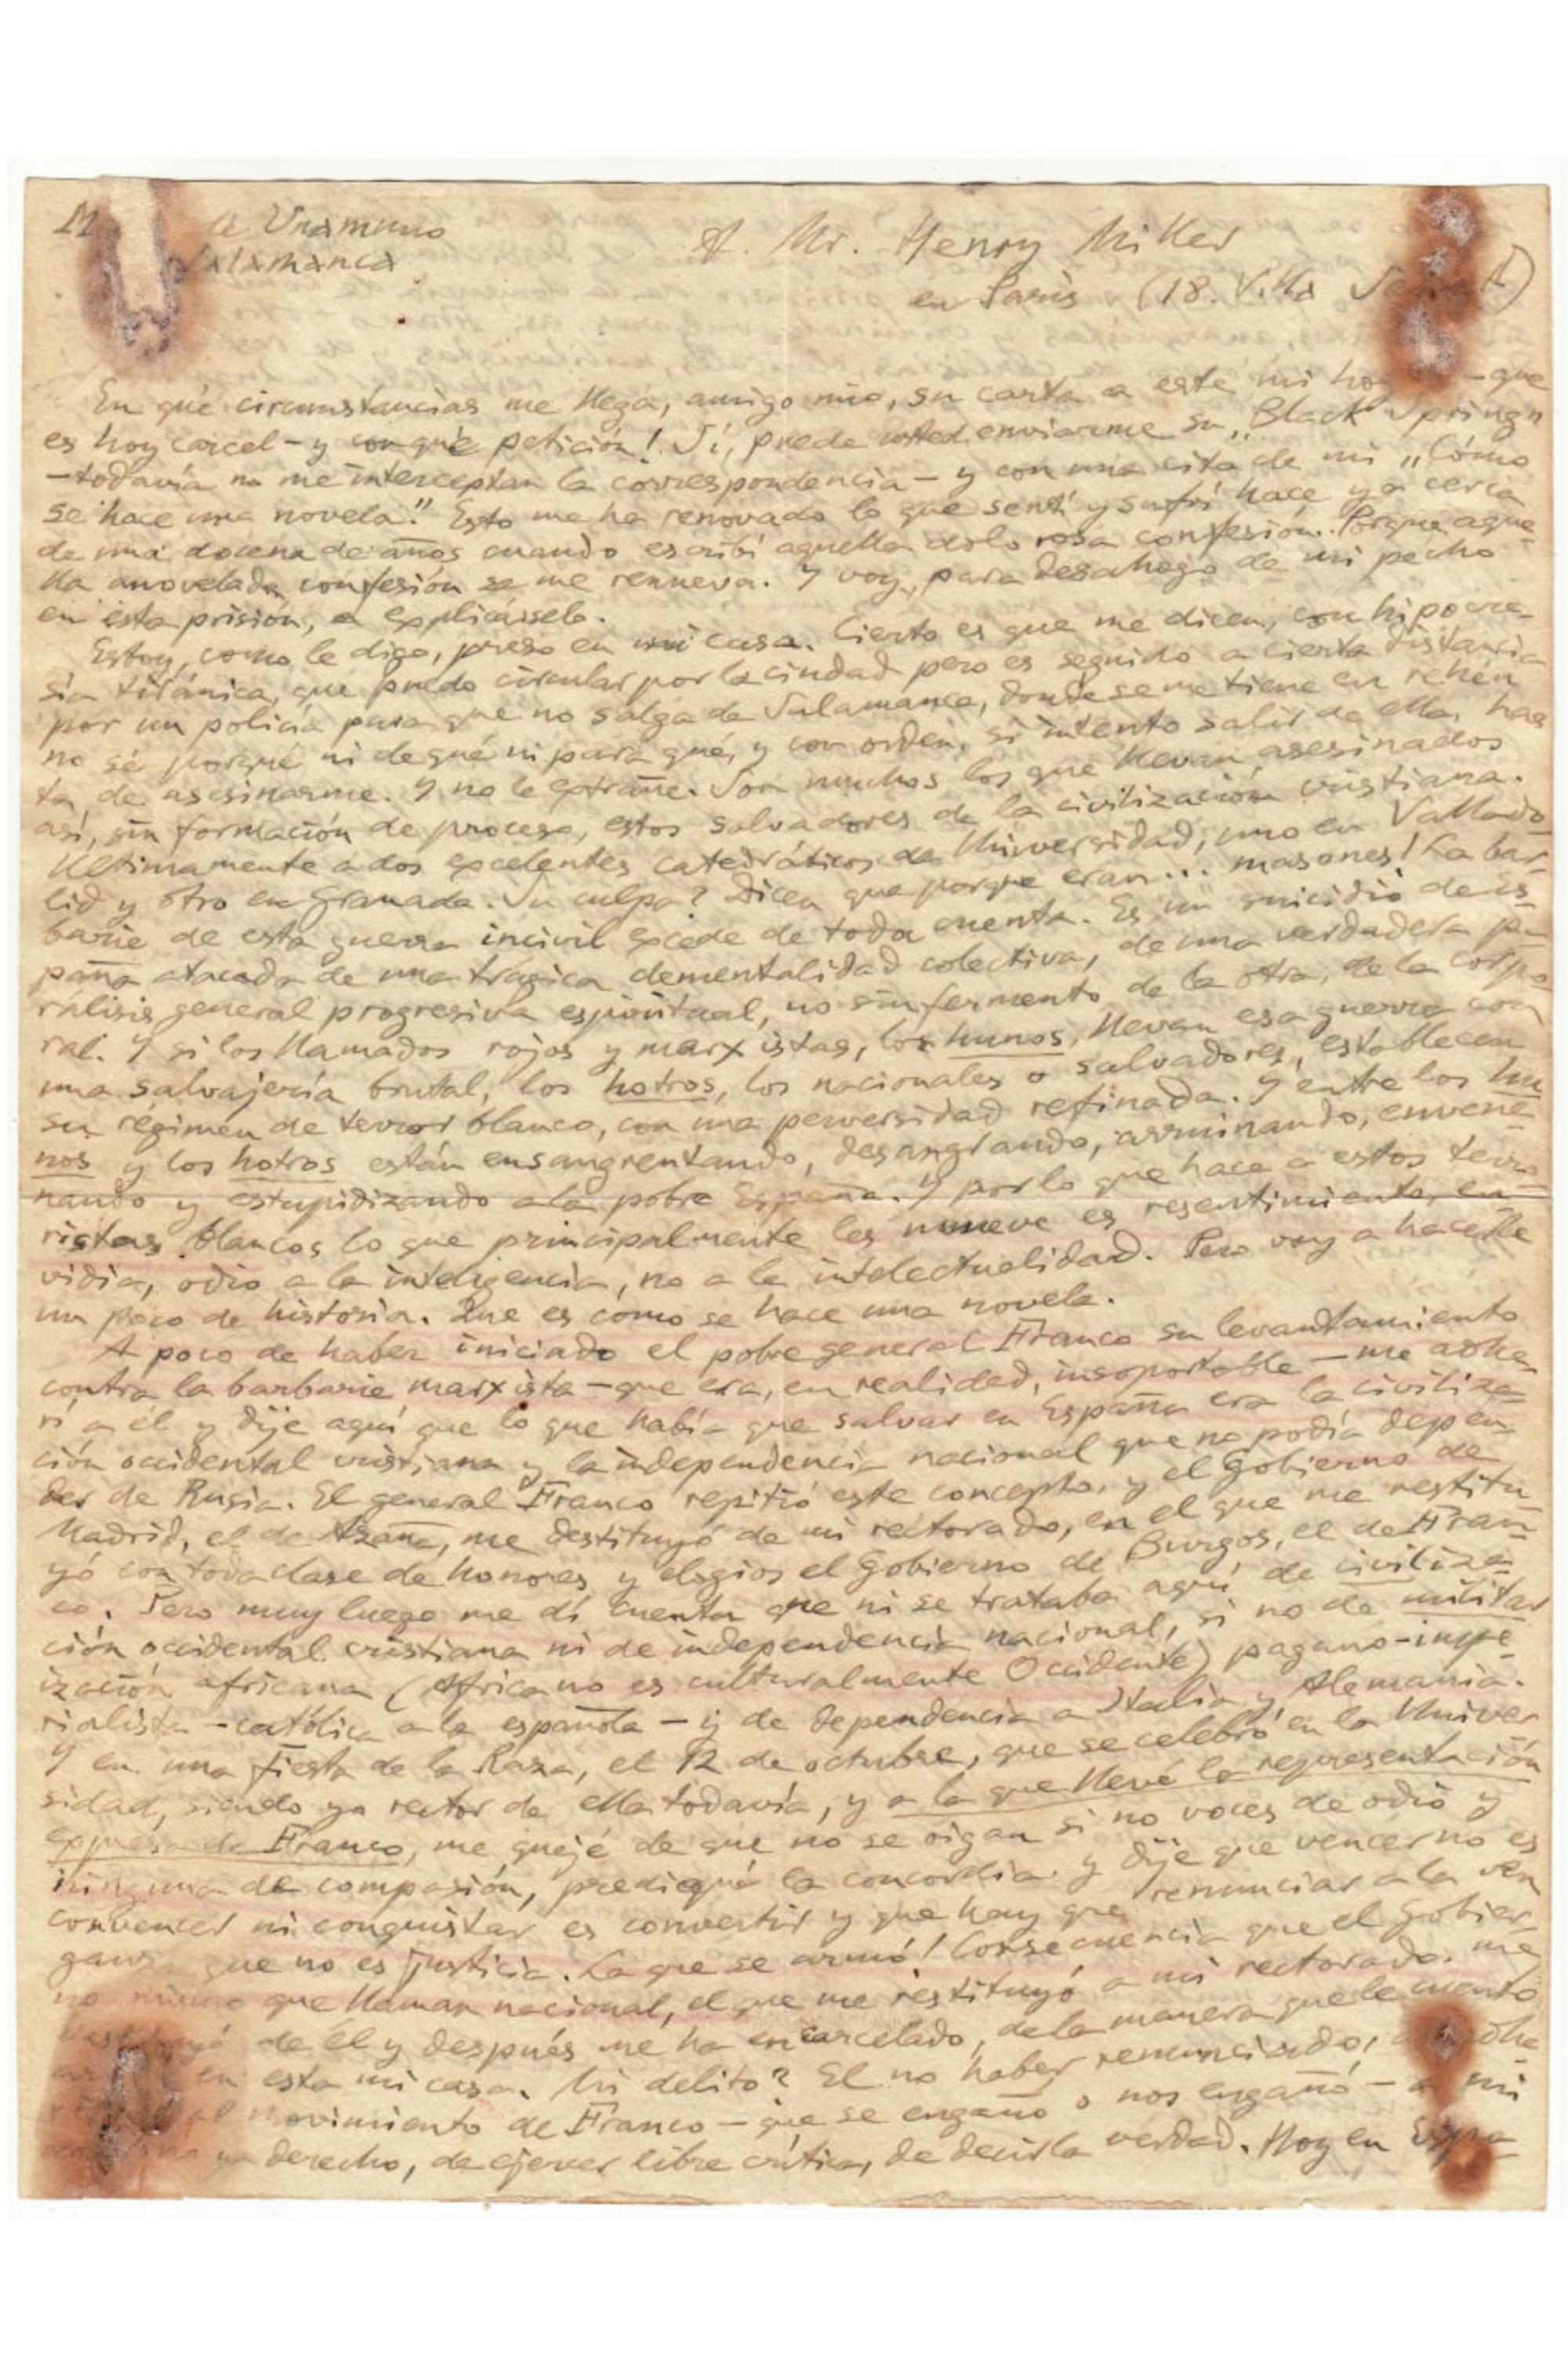 M de Unamuno
Salamanca
A. Mr. Henry Miller
en París (18. Villa
En qué circunstancias me llega, amigo mío, su carta a este mi —que
es hoy carcel—y con qué petición! Sí, puede usted enviarme su „Black Spring"
—todavía no me interceptan la correspondencia—y con una cita de mi „Cómo
se hace una novela." Esto me ha renovado lo que sentí y sufrí hace ya cerca
de una docena de años cuando escribí aquella dolorosa confesión. Porque aque-
lla anovelada confesión se me renueva. Y voy, para desahogo de mi pecho
en esta prisión, a explicárselo.
Estoy, como le digo, preso en mi casa. Cierto es que me dicen, con hipocre-
sía tiránica, que puedo circular por la ciudad pero es seguido a cierta distancia
por un policía para que no salga de Salamanca, donde se me tiene en rehén
no sé porqué ni de qué ni para qué, y con orden, si intento salir de ella, has
ta de asesinarme. Y no le extrañe. Son muchos los que llevan asesinados
así, sin formación de proceso, estos salvadores de la civilización cristiana.
Ultimamente a dos excelentes catedráticos de Universidad, uno en Vallado-
lid y otro en Granada. Su culpa? Dicen que porque eran... masones! La bar-
barie de esta guerra incivil excede de toda cuenta. Es un suicidio de Es-
paña atacada de una trágica dementalidad colectiva, de una verdadera pa-
rálisis general progresiva espiritual, no sin fermento de la otra, de la corpo
ral. Y si los llamados rojos y marxistas, los hunos, llevan esa guerra con
una salvajería brutal, los hotros, los nacionales o salvadores, establecen
su régimen de terror blanco, con una perversidad refinada. Y entre los hu
nos y los hotros están ensangrentando, desangrando, arruinando, envene
nando y estupidizando a la pobre España. Y por lo que hace a estos terro
ristas blancos lo que principalmente les mueve es resentimiento, en
vidia, odio a la inteligencia, no a la intelectualidad. Pero voy a hacerle
un poco de historia. Que es como se hace una novela.
A poco de haber iniciado el pobre general Franco su levantamiento
contra la barbarie marxista—que era, en realidad, insoportable—me adhe-
rí a él y dije aquí que lo que había que salvar en España era la civiliza-
ción occidental cristiana y la independencia nacional que no podía depen-
der de Rusia. El general Franco repitió este concepto, y el Gobierno de
Madrid, el de Azaña, me destituyó de mi rectorado, en el que me restitu
yó con toda clase de honores y elogios el Gobierno de Burgos, el de Fran
co. Pero muy luego me dí cuenta que ni se trataba aquí de civiliza-
ción occidental cristiana ni de independencia nacional, si no de militar
ización africana (Africa no es culturalmente Occidente) pagano-impe
rialista—católica a la española—y de dependencia a Italia y Alemania.
Y en una fiesta de la Raza, el 12 de octubre, que se celebró en la Univer
sidad, siendo yo rector de ella todavía, y a la que llevé la representación
expresa de Franco, me quejé de que no se oigan si no voces de odio y
ninguna de compasión, prediqué la concordia y dije que vencer no es
convencer ni conquistar es convertir y que hay que renunciar a la ven
ganza que no es justicia. La que se armó! Consecuencia que el Gobier
no mismo que llaman nacional, el que me restituyó a mi rectorado, me
de él y después me ha encarcelado, de la manera que le cuento
en esta mi casa. Mi delito? El no haber renunciado,
movimiento de Franco—que se engañó o nos engañó—a mi
derecho, de ejercer libre crítica, de decir la verdad. Hoy en Espa-